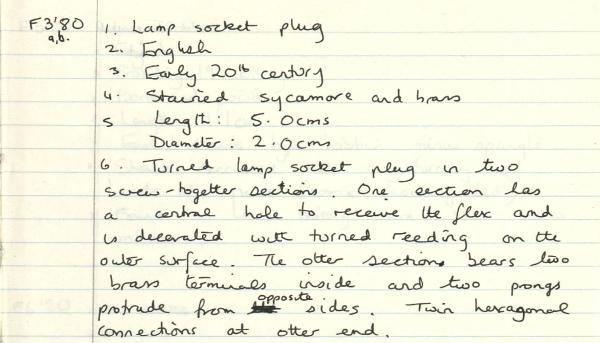 F3'80 1. Lamp socket plug
a,b. 2. English
3. Early 20th century
4. Stained sycamore and brass
5 Length: 5.0cms
Diameter: 2.0cms
6. Turned lamp socket plug in two
screw-together sections. One section has
a central hole to receive the flex and
is decorated with turned reeding on the
outer surface. The other section bears two
brass terminals inside and two prongs
protrude from opposite sides. Twin hexagonal
connections at other end.